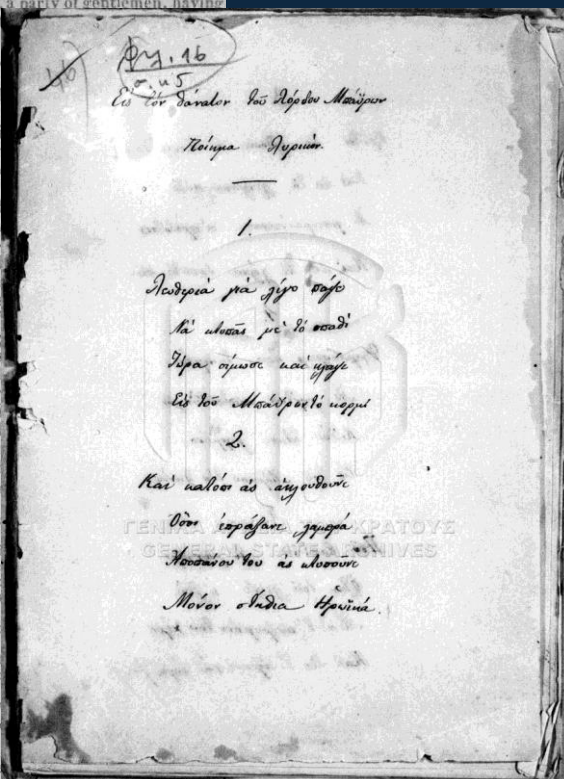 a party of gentlemen, having
φχ. 16
σ. κ5
46
Εἰς τὸν θάνατον τοῦ Λόρδου Μπαΰρων
Ποίημα Λυρικόν.
1.
Λευθεριὰ γιὰ λίγο πάψε
Νὰ κτυπᾶς μὲ τὸ σπαθὶ
Τώρα σίμωσε καὶ κλάψε
Εἰς τοῦ Μπάϋρων τὸ κορμὶ
2.
Καὶ κατόπι ἂς ἀκλουθοῦνε
Ὅσοι ἐπράξανε λαμπρά
Ἀποπάνου του ἂς κτυποῦνε
Μόνον στήθια Ἡρωϊκά.
ΓΕΝΙΚΑ ΑΡΧΕΙΑ ΤΟΥ ΚΡΑΤΟΥΣ
GENERAL STATE ARCHIVES